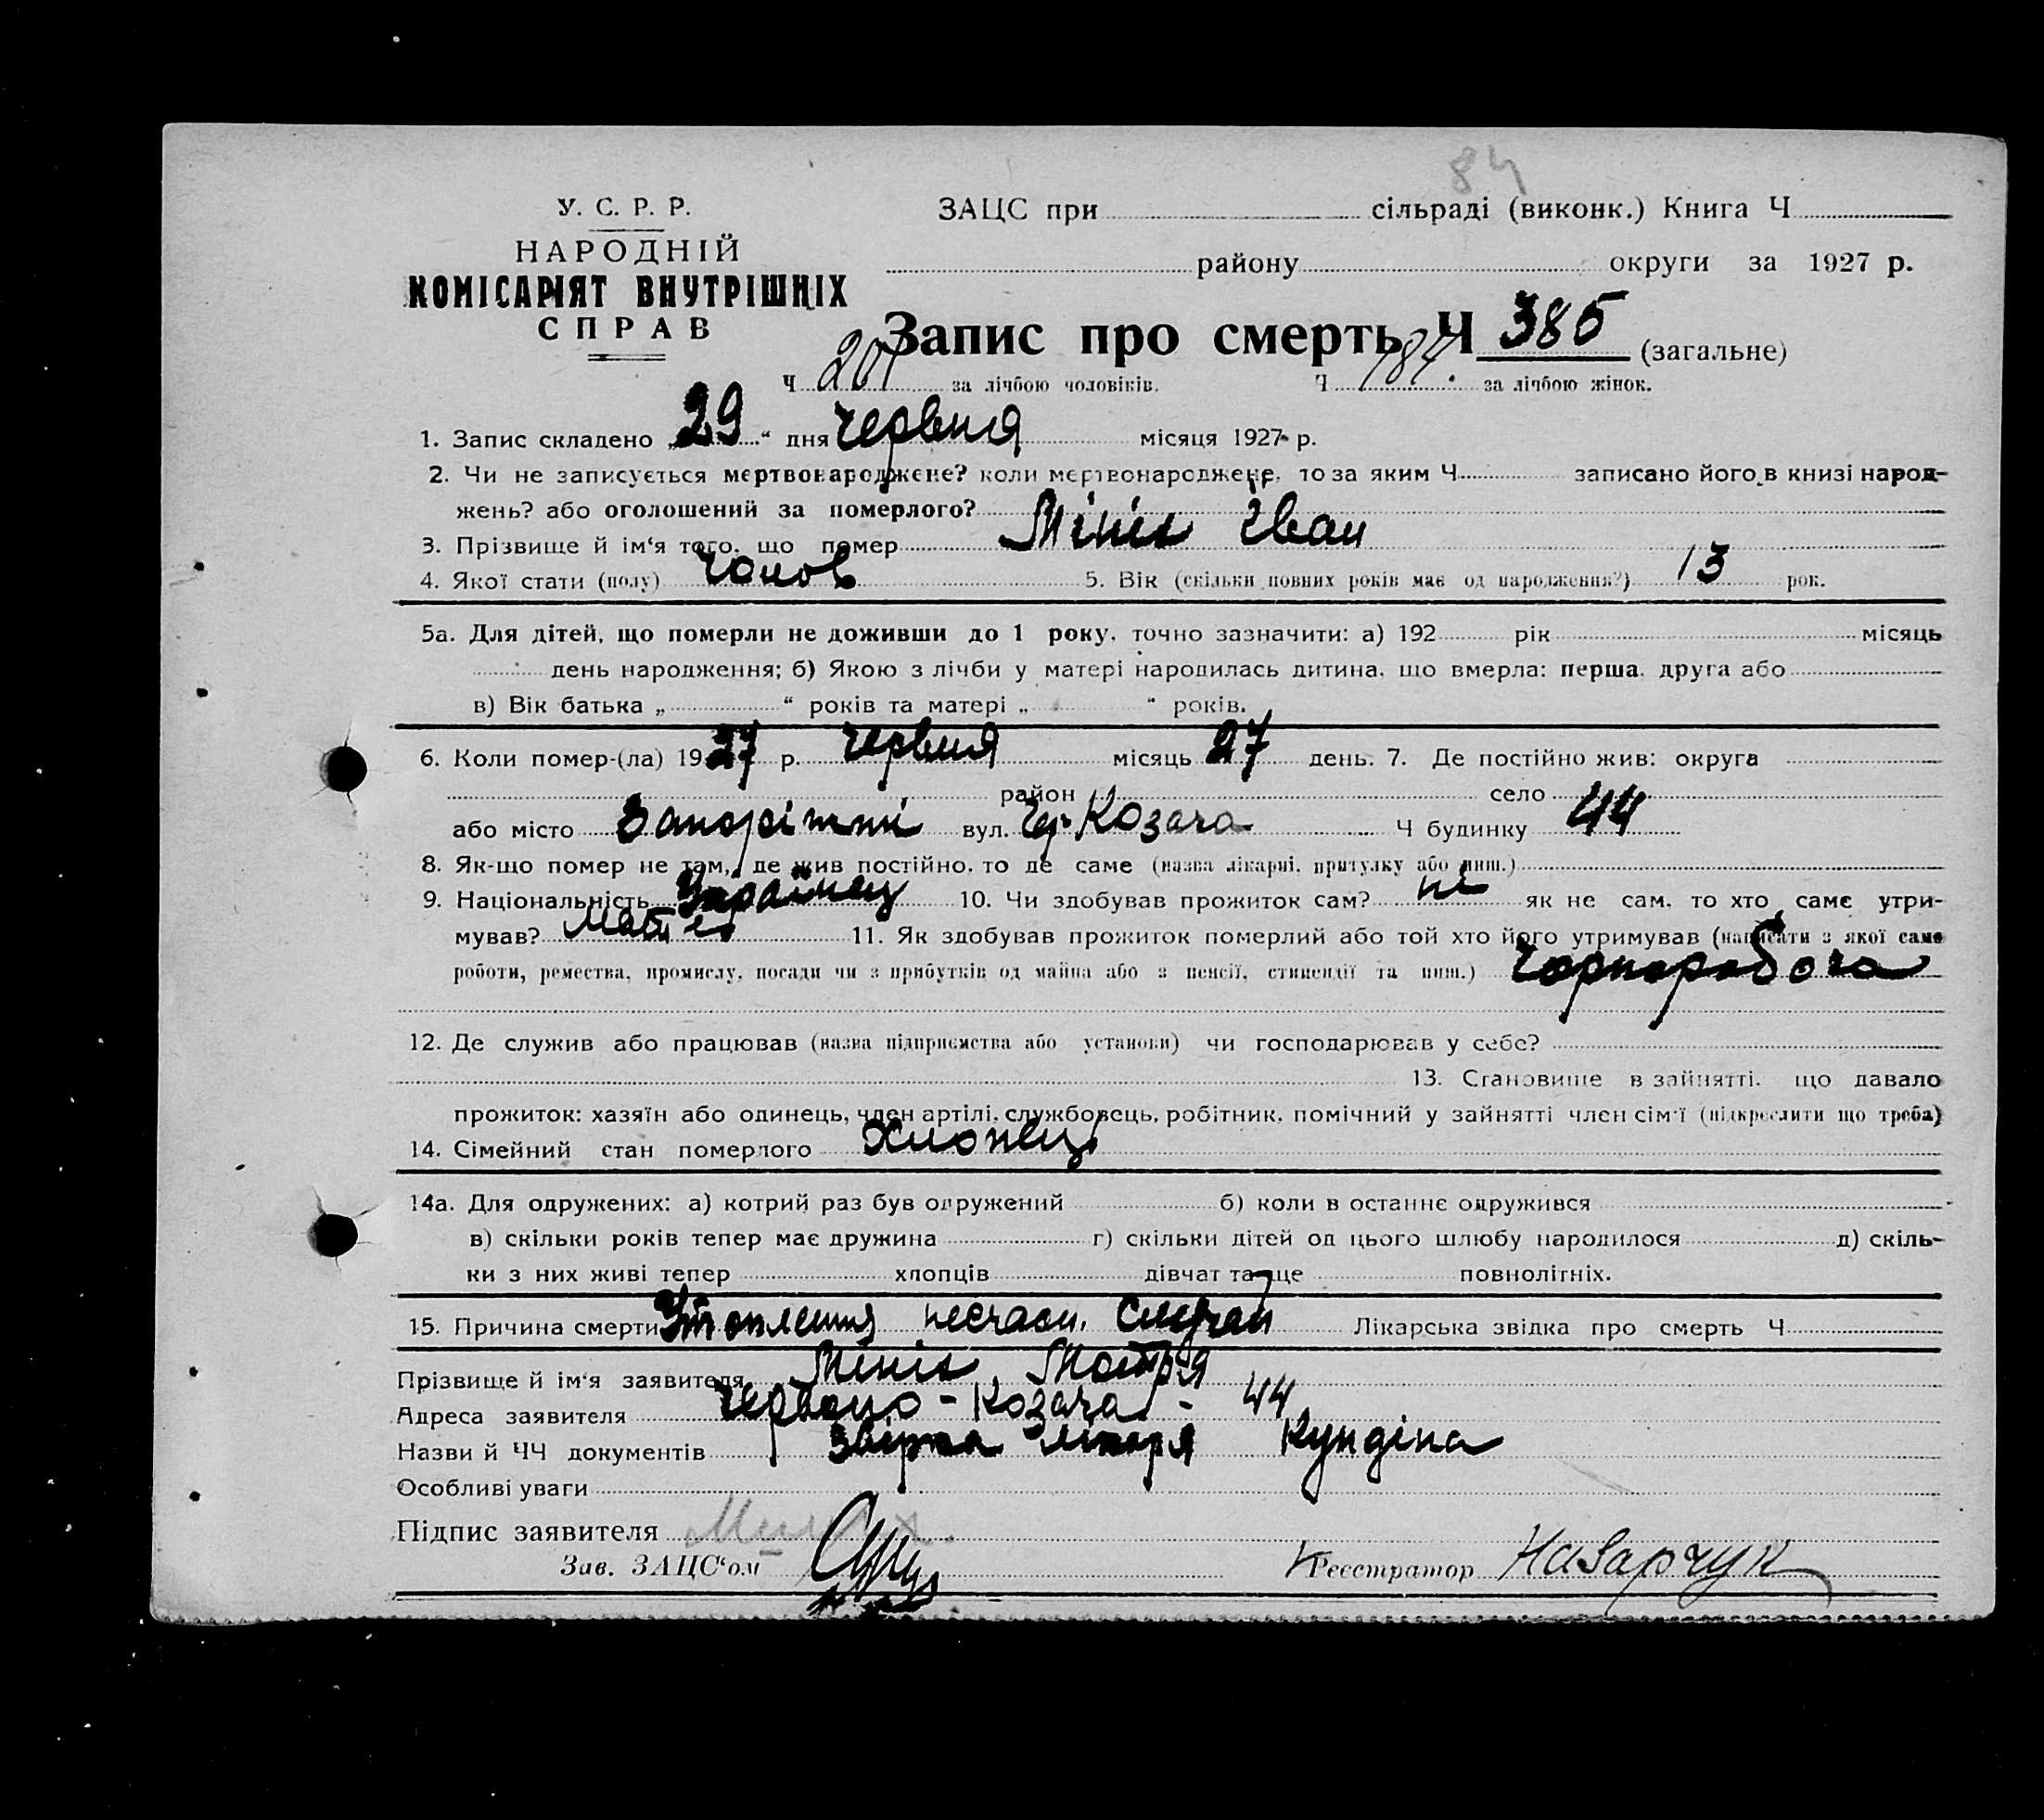 84
У. С. Р. Р.
НАРОДНІЙ
КОМІСАРІЯТ ВНУТРІШНІХ
СПРАВ
ЗАЦС при сільраді (виконк.) Книга Ч
району округи за 1927 р.
Запис про смерть Ч 385 (загальне)
Ч 201 за лічбою чоловіків. Ч 184. за лічбою жінок.
1. Запис складено „29“ дня червня місяця 1927 р.
2. Чи не записується мертвонароджене? коли мертвонароджене, то за яким Ч записано його в книзі народ-
жень? або оголошений за померлого?
3. Прізвище й ім‘я того, що помер Мініх Іван
4. Якої стати (полу) чолов 5. Вік (скільки повних років має од народження?) 13 рок.
5а. Для дітей, що померли не доживши до 1 року, точно зазначити: а) 192 рік місяць
день народження; б) Якою з лічби у матері народилась дитина, що вмерла: перша, друга або
в) Вік батька „ “ років та матері „ “ років.
6. Коли помер-(ла) 1927 р. червня місяць 27 день. 7. Де постійно жив: округа
район село
або місто Запоріжжі вул. Чер-Козача Ч будинку 44
8. Як-що помер не там, де жив постійно, то де саме (назва лікарні, притулку або инш.)
9. Національність Українец 10. Чи здобував прожиток сам? ні як не сам, то хто саме утри-
мував? 11. Як здобував прожиток померлий або той хто його утримував (написати з якої саме
роботи, ремества, промислу, посади чи з прибутків од майна або з пенсії, стипендії та инш.) Чорноробоча
12. Де служив або працював (назва підприємства або установи) чи господарював у себе?
13. Становище в зайнятті, що давало
прожиток: хазяїн або одинець, член артілі, службовець, робітник, помічний у зайнятті член сім‘ї (підкреслити що треба)
14. Сімейний стан померлого Хлопець
14а. Для одружених: а) котрий раз був одружений б) коли в останнє одружився
в) скільки років тепер має дружина г) скільки дітей од цього шлюбу народилося д) скіль-
ки з них живі тепер хлопців дівчат та ще повнолітніх.
15. Причина смерти Утоплення нещасн. случай Лікарська звідка про смерть Ч
Прізвище й ім‘я заявителя Мініх Мотря
Адреса заявителя Червоно-Козача - 44
Назви й ЧЧ документів лікаря Кундіна
Особливі уваги
Підпис заявителя
Зав. ЗАЦС‘ом Реєстратор Назарчук